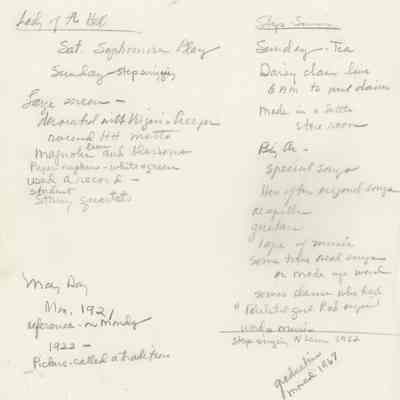 Lady of the
Sat. Sophomore Play
Sunday - stepsinging
Large screen -
decorated with Virginia Creeper
around HH motto
Magnolia leaves and blossoms
Paper napkins - white & green
used a record -
student
String quartets
May Day
Mon, 192
reference - on Monday
1922 -
Picture - called a tradition
Step
Sunday - Tea
Daisy chain line
6 AM to
made in a little
store room
Big Or -
special songs
Hear often original songs
acapella
guitar
tape of music
some took real songs
or made up words
some classes who had
a
words & music
Step singing N 1962
graduation
moved 1967